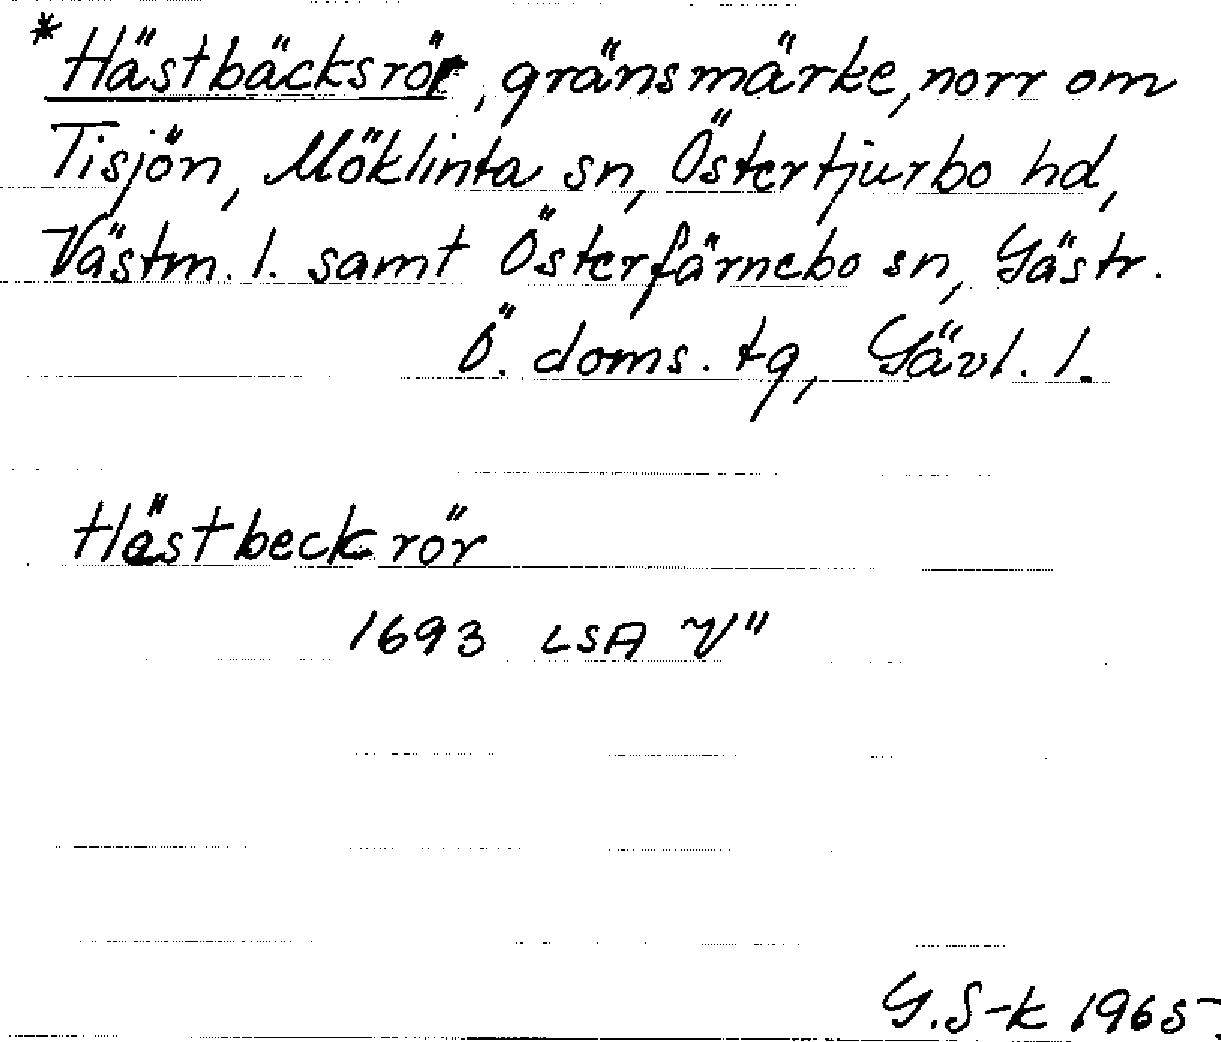 *Hästbäcksrör, gränsmärke, norr om
Tisjön, Möklinta sn, Östertjurbo hd,
Västm. l. samt Österfärnebo sn, Gästr.
Ö. doms. tg, Gävl. l.
Hästbeckrör
1693 LSA V"
G.S-k 1965.